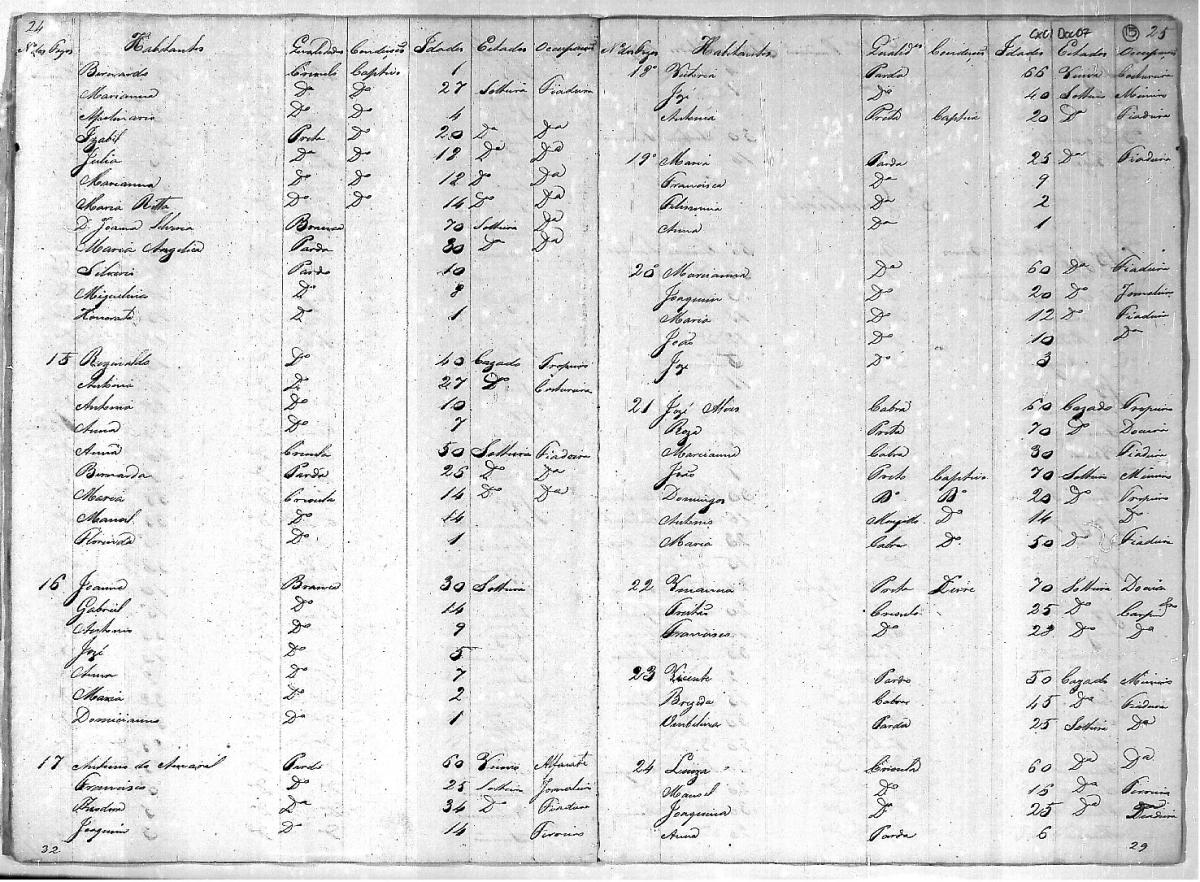 24
Nº dos Fogos Habitantes Qualidades Condições Idades Estados Occupações
Bernardo Crioulo Captivo 1
Marianna Dª Dº 27 Solteira Fiadeira
Apolinario Dº Dº 4
Izabel Preta Dº 20 Dª Dª
Julia Dª Dº 18 Dª Dª
Marianna Dº Dº 12 Dº Dª
Maria Ritta Dº Dº 14 Dº Dª
D. Joana Silveria Branca 70 Solteira Dª
Maria Angelica Parda 30 Dª Dª
Silverio Pardo 10
Miguelina Dº 8
Honorato Dº 1
15 Reginaldo Dº 40 Cazado Tropeiro
Antonia Dº 27 Dº Costureira
Antonia Dº 10
Anna Dº 7
Anna Crioula 50 Solteira Fiadeira
Bernarda Parda 25 Dº Dª
Maria Crioula 14 Dº Dª
Manoel Dº 14
Florinda Dº 1
16 Joanna Branca 30 Solteira
Gabriel Dº 14
Antonio Dº 9
Jozé Dº 5
Anna Dº 7
Maria Dº 2
Domiciano Dª 1
17 Antonio do Amaral Pardo 60 Viuvo Alfaiate
Francisco Dº 25 Solteiro Jornaleiro
Theodora Dª 34 Dº Fiadeira
Joaquim Dº 14 Ferreiro
32
Cx01 Doc07 15 25
Nº dos Fogos Habitantes Qualides Condições Idades Estados Occupações
18º Victoria Parda 66 Viuva Costureira
Jozé Dº 40 Solteiro Mineiro
Antonia Preta Captiva 20 Dº Fiadeira
19º Maria Parda 25 Dª Fiadeira
Francisca Dª 9
Felismina Dª 2
Anna Dª 1
20º Marcianna Dª 60 Dª Fiadeira
Joaquim Dº 20 Dº Jornaleiro
Maria Dº 12 Dº Fiadeira
João Dº 10 Dª
Jozé Dº 3
21 Jozé Alves Cabra 60 Cazado Tropeiro
Roza Preta 70 Dº Doceira
Marcianna Cabra 30 Fiadeira
João Preto Captivo 70 Solteiro Mineiro
Domingos Dº Dº 20 Dº Tropeiro
Antonio Dº 14 Dº
Maria Cabra Dº 50 Dº Fiadeira
22 Preta Livre 70 Solteira Doceira
Crioulo 25 Dº Carpº
Francisco Dº 23 Dº Dº
23 Vicente Pardo 50 Cazado Mineiro
Brizida Cabra 45 Dº Fiadeira
Umbelina Parda 25 Solteira Dª
24 Luiza Crioula 60 Dª Dª
Manoel Dº 16 Dª Ferreiro
Joaquina Dº 25 Dº Fiadeira
Anna Parda 6
29